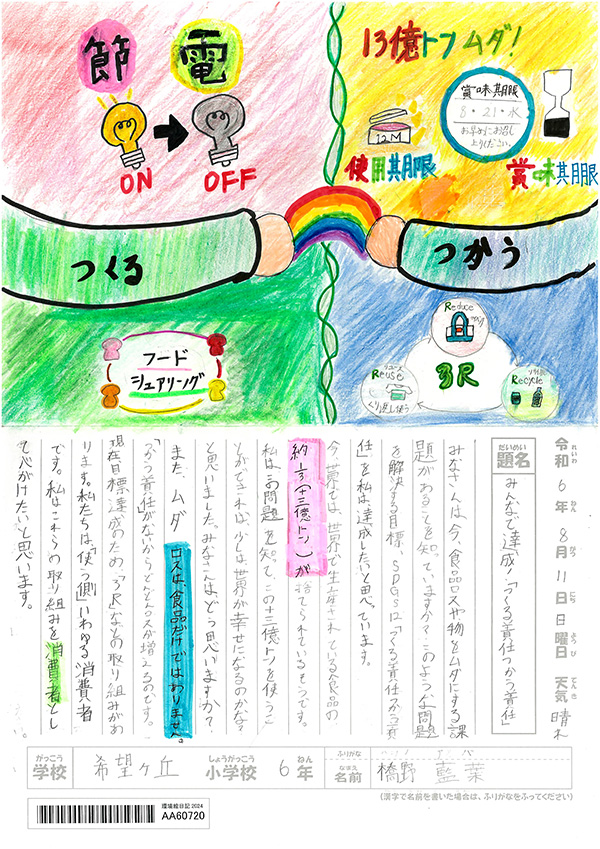 節電
ON
OFF
13億トンムダ!
賞味期限
8・21・水
お早めにお召し
上りください。
12M
使用期限
賞味期限
つくる
つかう
フード
シェアリング
Reduce
3R
Reuse
リユース
くり返し使う
Recycle
リサイクル
令和6年8月11日日曜日 天気 晴れ
れいわ ねん がつ にち ようび てんき
だいめい
題名
みんなで達成!「つくる責任つかう責任」
みなさんは今、食品ロスや物をムダにする課
題があることを知っていますか?このような問題
を解決する目標、SDGsに「つくる責任つかう責
任」を私は達成したいと思っています。
今、世界では、世界で生産されている食品の
約1/3(十三億トン)が捨てられているそうです。
私はこの問題を知って、この十三億トンを使うこ
とができれば、少しは世界が幸せになるのかな?
と思いました。みなさんは、どう思いますか?
また、ムダ・ロスは、食品だけではありません。
「つかう責任」がないからどんどんロスが増えるのです。
現在目標達成のため、「3R」などの取り組みがあ
ります。私たちは、「使う側」いわゆる消費者
です。私はこれらの取り組みを消費者とし
て心がけたいと思います。
がっこう
学校
希望ヶ丘
しょうがっこう
小学校
6
ねん
年
ふりがな
なまえ
名前
橋野 藍葉
(漢字で名前を書いた場合は、ふりがなをふってください)
環境絵日記2024
AA60720